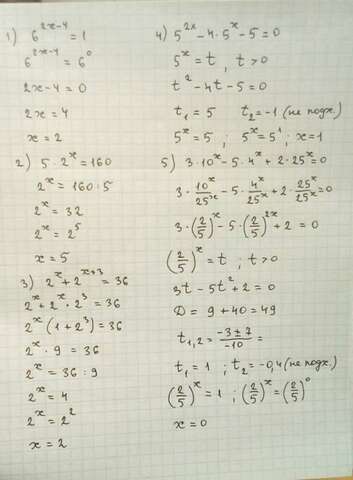 1) 6^{2x-4} = 1
6^{2x-4} = 6^0
2x-4 = 0
2x = 4
x = 2
2) 5 · 2^x = 160
2^x = 160 · 5
2^x = 32
2^x = 2^5
x = 5
3) 2^x + 2^{x+3} = 36
2^x + 2^x · 2^3 = 36
2^x (1 + 2^3) = 36
2^x · 9 = 36
2^x = 36 : 9
2^x = 4
2^x = 2^2
x = 2
4) 5^{2x} - 4 · 5^x - 5 = 0
5^x = t , t > 0
t^2 - 4t - 5 = 0
t_1 = 5 t_2 = -1 (не подх.)
5^x = 5 ; 5^x = 5^1 ; x = 1
5) 3 · 10^x - 5 · 4^x + 2 · 25^x = 0
3 · 10^x/25^x - 5 · 4^x/25^x + 2 · 25^x/25^x = 0
3 · (2/5)^x - 5 · (2/5)^{2x} + 2 = 0
(2/5)^x = t ; t > 0
3t - 5t^2 + 2 = 0
D = 9 + 40 = 49
t_{1,2} = (-3 ± 7)/(-10) =
t_1 = 1 ; t_2 = -0,4 (не подх.)
(2/5)^x = 1 ; (2/5)^x = (2/5)^0
x = 0